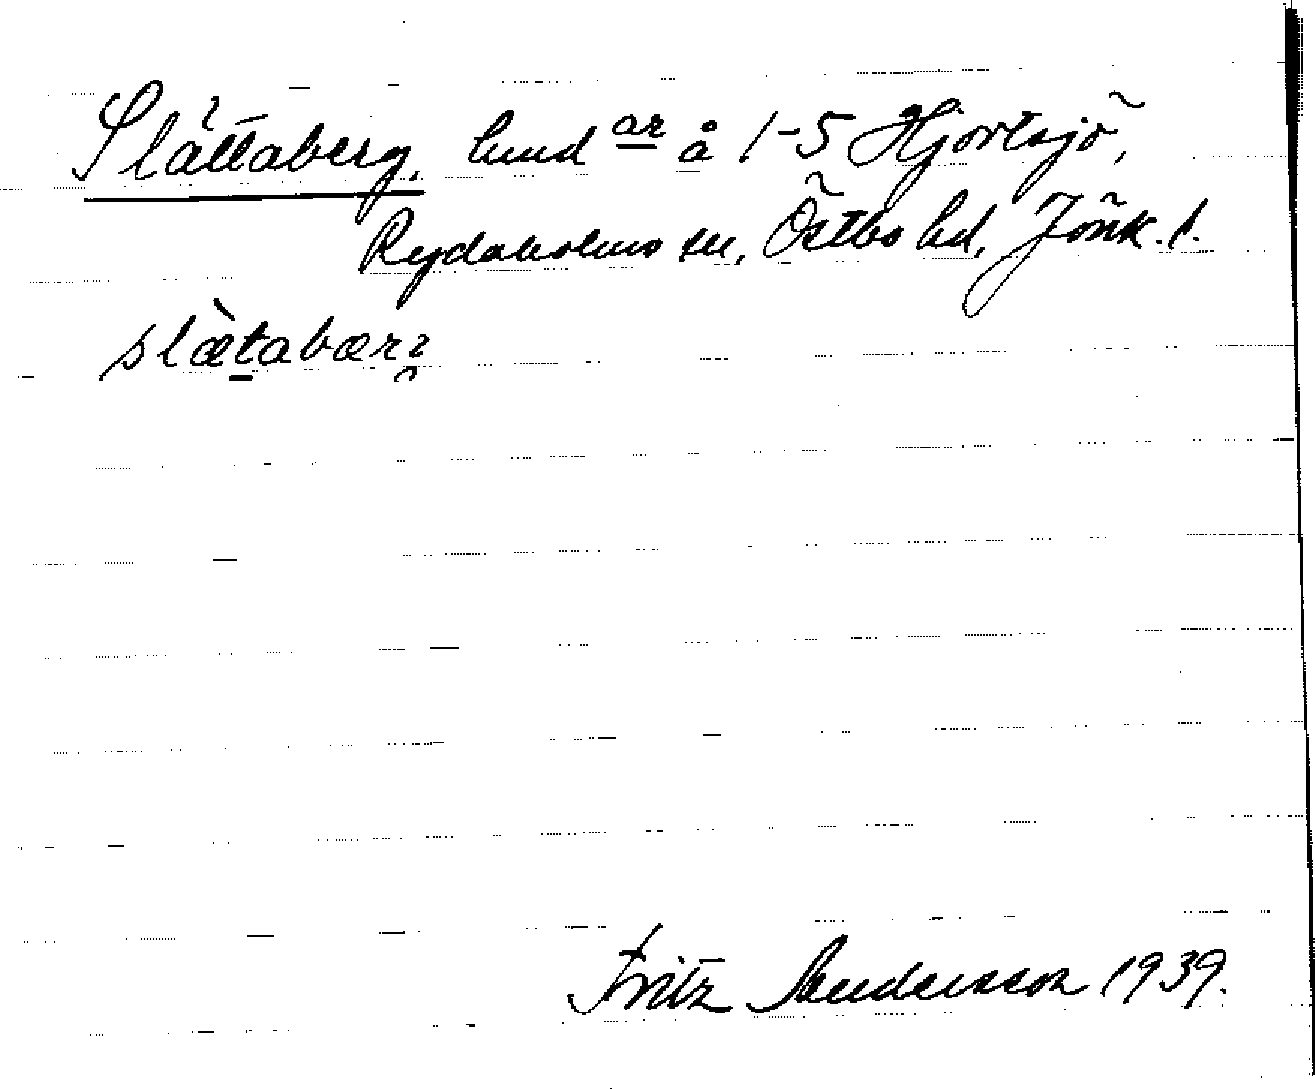 Slättaberg, lund ar å 1-5 Hjortsjö,
Rydaholms sn, Östbo hd, Jönk. l.
slæ̀tabærg
Fritz Andersson 1939.